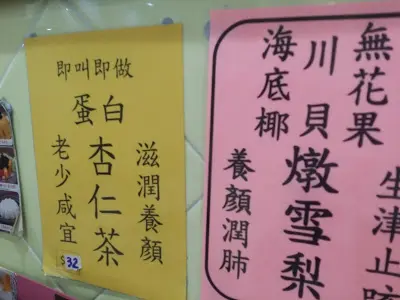 即叫即做
蛋白
滋潤養顏
杏仁茶
老少咸宜
$32
無花果
生津止咳
川貝燉雪梨
海底椰
養顏潤肺